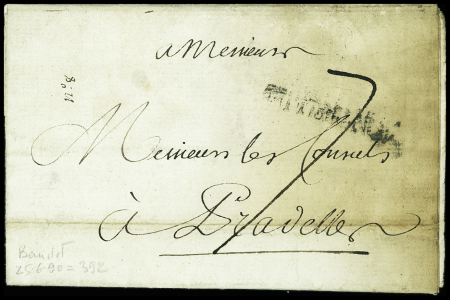 a Messieurs
N° 8
7
Messieurs les Consuls
à Pradelles
Baudot
25.6.90 = 392